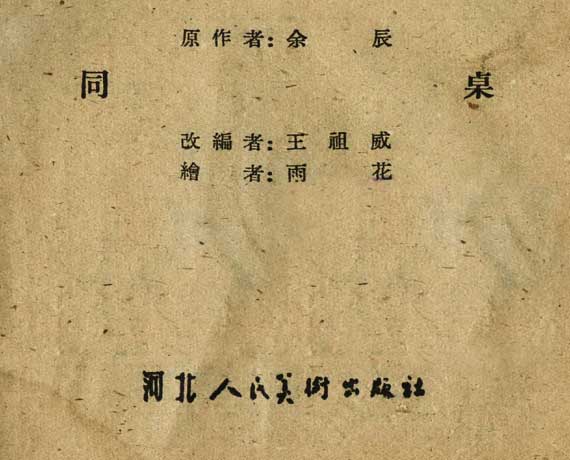 原作者：余辰
同桌
改編者：王祖威
繪者：雨花
河北人民美術出版社